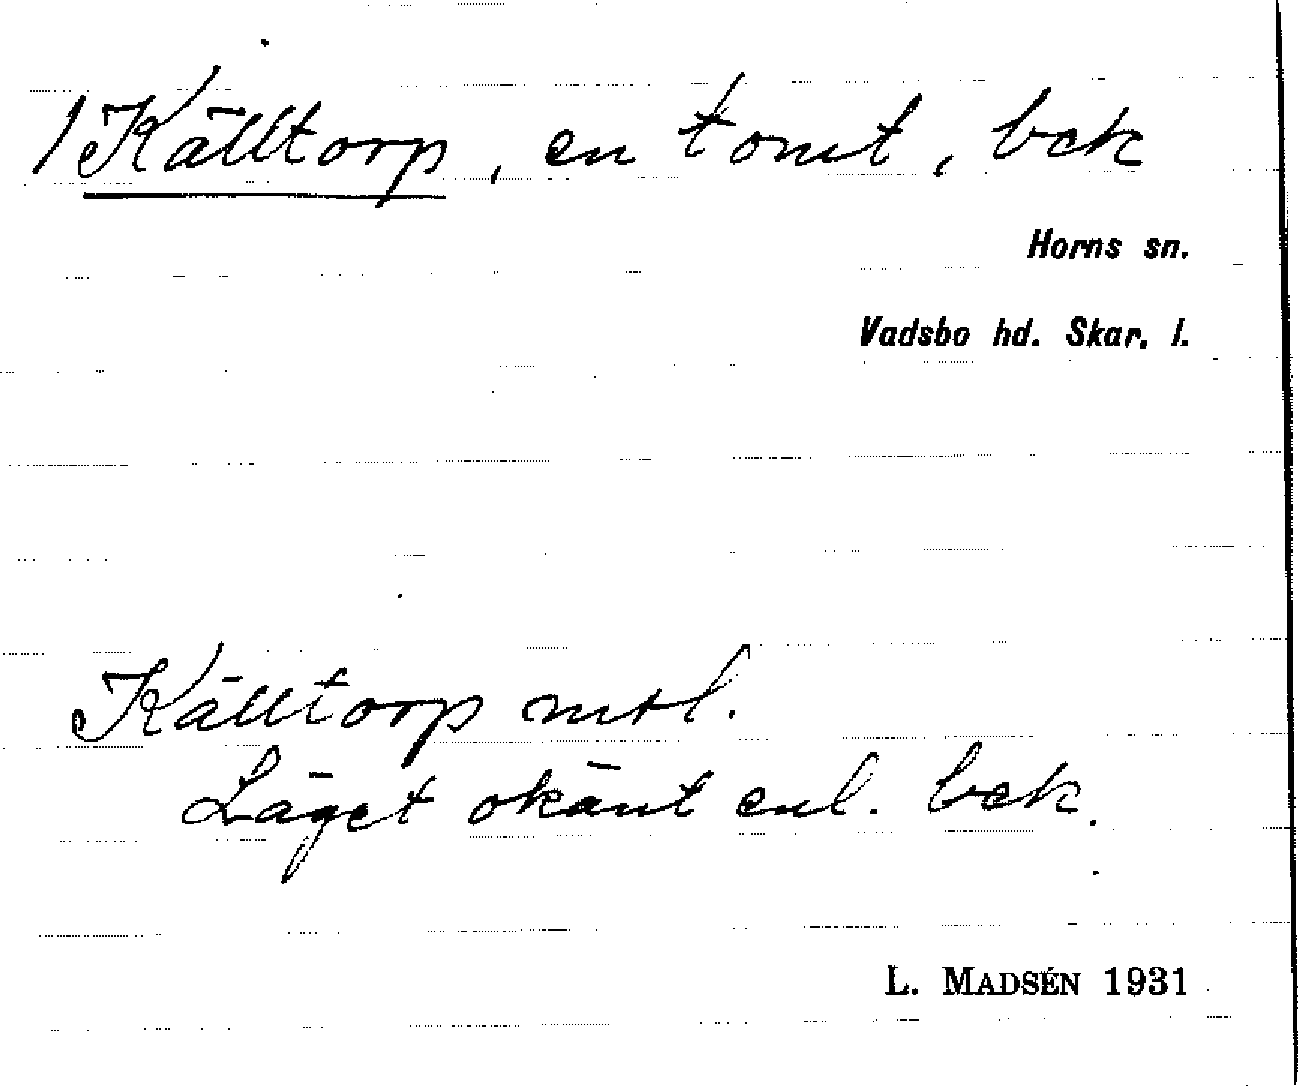 1 Källtorp, en tomt, bek
Horns sn.
Vadsbo hd. Skar. l.
Källtorp mtl.
Läget okänt enl. bek.
L. MADSÉN 1931